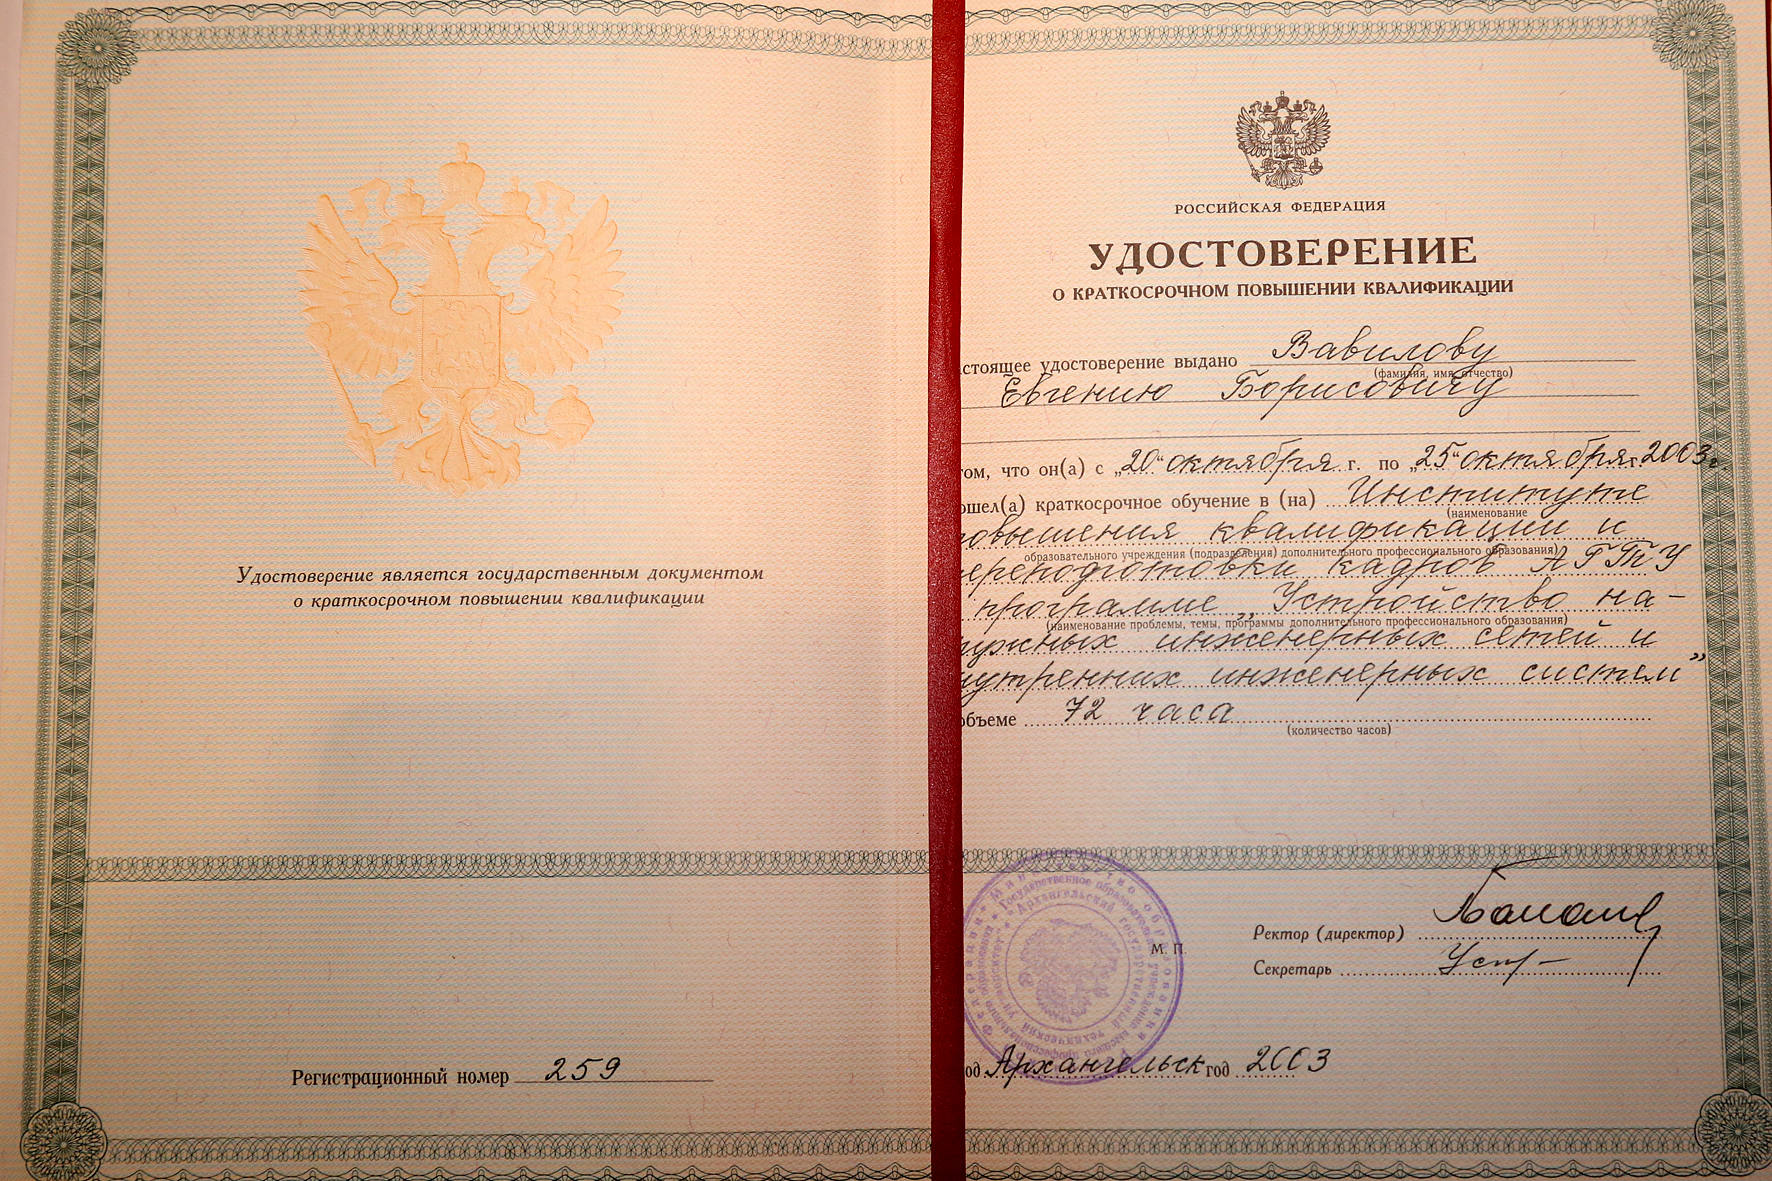 Удостоверение является государственным документом
о краткосрочном повышении квалификации
Регистрационный номер 259
РОССИЙСКАЯ ФЕДЕРАЦИЯ
УДОСТОВЕРЕНИЕ
О КРАТКОСРОЧНОМ ПОВЫШЕНИИ КВАЛИФИКАЦИИ
стоящее удостоверение выдано Вавилову
(фамилия, имя, отчество)
Евгению Борисовичу
том, что он(а) с „20“ октября г. по „25“ октября г. 2003г.
ошел(а) краткосрочное обучение в (на) Институте
(наименование
овышения квалификации и
образовательного учреждения (подразделения) дополнительного профессионального образования)
ереподготовки кадров АГТУ
программе „Устройство на-
(наименование проблемы, темы, программы дополнительного профессионального образования)
ужных инженерных сетей и
нутренних инженерных систем”
объеме 72 часа
(количество часов)
М. П.
Ректор (директор)
Секретарь
од Архангельск год 2003